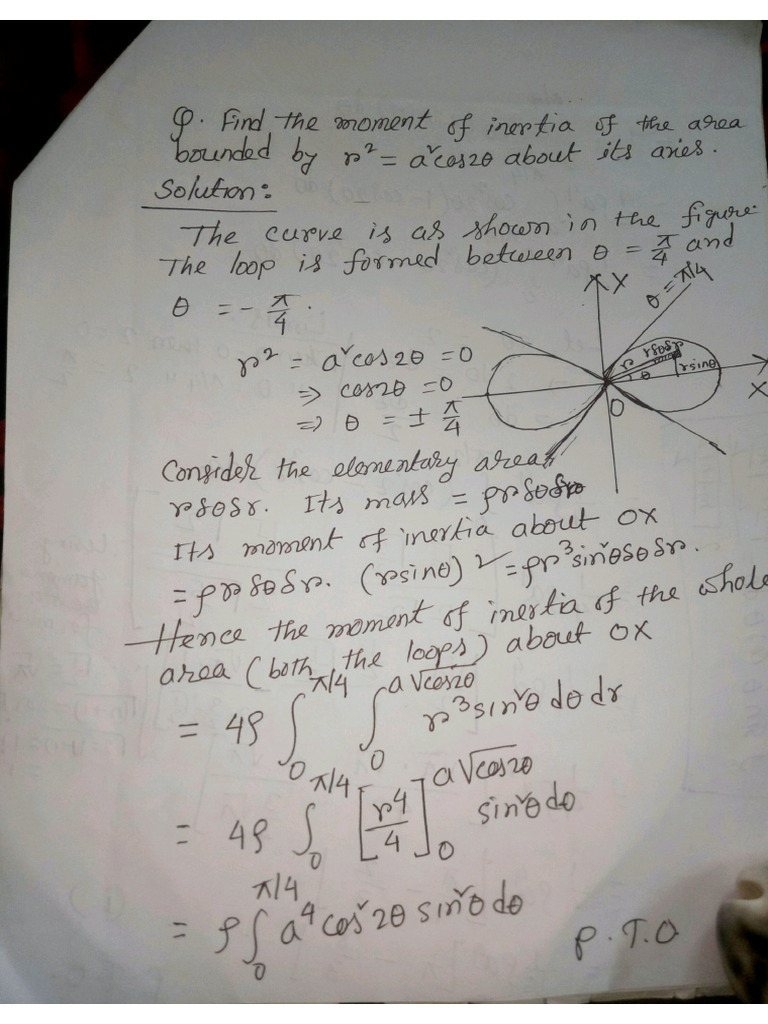 Q. Find the moment of inertia of the area
bounded by r² = a²cos2θ about its axies.
Solution:
The curve is as shown in the figure.
The loop is formed between θ = π/4 and
θ = - π/4.
r² = a²cos2θ = 0
⇒ cos2θ = 0
⇒ θ = ± π/4
Y
θ = π/4
r rδθδr
θ rsinθ
O
X
Consider the elementary area
rδθδr. Its mass = ρrδθδr
Its moment of inertia about OX
= ρrδθδr. (rsinθ)² = ρr³sin²θδθδr.
Hence the moment of inertia of the whole
area (both the loops) about OX
= 4ρ ∫₀^π/4 ∫₀^a√cos2θ r³sin²θdθdr
= 4ρ ∫₀^π/4 [r⁴/4]₀^a√cos2θ sin²θdθ
= ρ∫₀^π/4 a⁴cos²2θ sin²θdθ
P.T.O